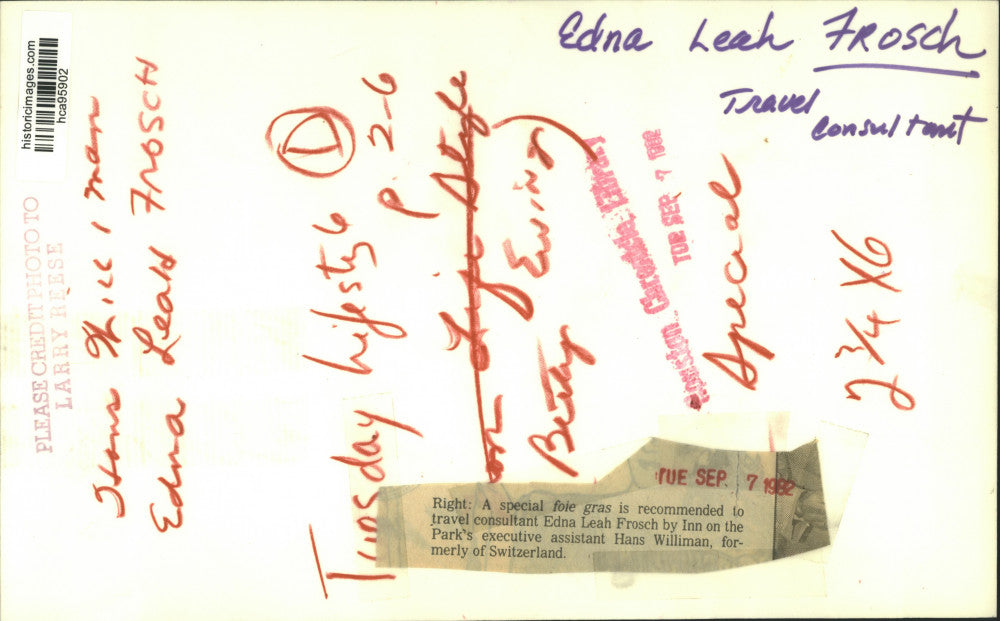 Edna Leah FROSCH
Travel
Consultant
historicimages.com
hca95902
PLEASE CREDIT PHOTO TO
LARRY REESE
Hans Williman
Edna Leah FROSCH
L
Tuesday Lifestyle
p. 2-6
Life Style
Betty Ewing
Houston Chronicle Library
TUE SEP 7 1982
Special
2 3/4 X6
TUE SEP. 7 1982
Right: A special foie gras is recommended to
travel consultant Edna Leah Frosch by Inn on the
Park's executive assistant Hans Williman, for-
merly of Switzerland.